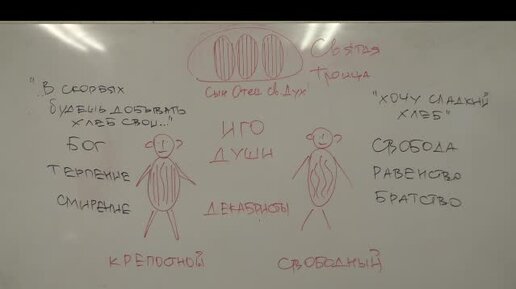 Святая
Троица
Сын Отец Св. Дух
"В скорбях
будешь добывать
хлеб свой..."
Бог
Терпение
Смирение
Иго
души
Декабристы
"Хочу сладкий
хлеб"
Свобода
Равенство
Братство
Крепостной
Свободный